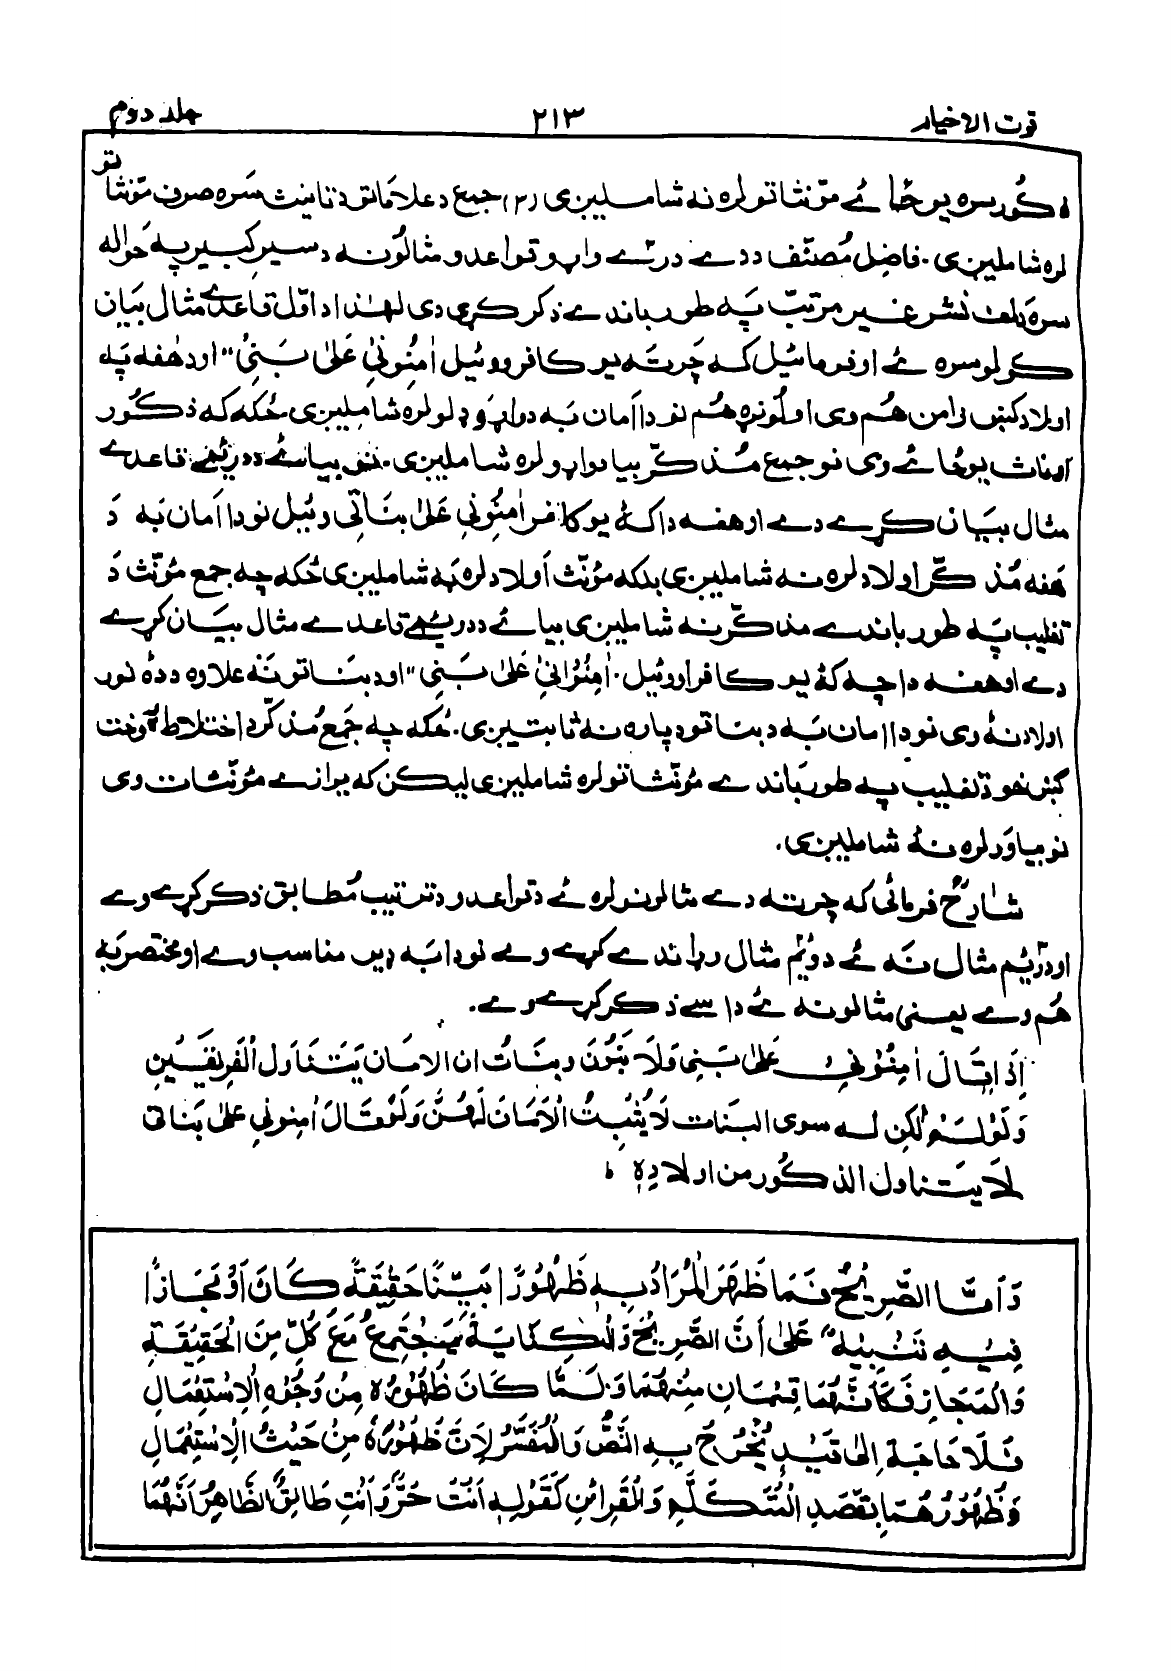 قوت الاخیار ۲۱۳ جلد دوم
ذکور سره یو ځائے مؤنثاتو لره نه شاملیږی (۲) جمع د علاماتو د تانیث سره صرف مؤنثاتو
لره شاملیږی. فاضل مُصنّف د دے درے واړو قواعدو مثالونه د سیر کبیر په حواله
سره په لف نشر غیر مرتبّ په طور باندے ذکر کړی دی لهٰذا د اوّل قاعدے مثال بیان
کولو سره ئے اوفرمائیل که چرته یو کافر ووئیل اٰمِنُونیْ عَلیٰ بَنِیَّ" او د هغه په
اولاد کښ زامن هُم وی او لُونړه هُم نو دا اَمان به دواړو ډلو لره شاملیږی ځکه که ذکور
اوناث یو ځائے وی نو جمع مذکّر بیا دواړو لره شاملیږی. بیائے د دریٔمے قاعدے
مثال بیان کړے دے او هغه دا که یو کافر اٰمِنُونِي عَلیٰ بناتی وئیل نو دا اَمان به دَ
هغه مُذکّر اولاد لره نه شاملیږی بلکه مؤنّث اَولاد لره به شاملیږی ځکه چه جمع مؤنّث دَ
تغلیب په طور باندے مذکّر نه شاملیږی بیائے د دویمے قاعدے مثال بیان کړے
دے او هغه دا چه که یو کافر اووئیل. اٰمِنُوْانیْ عَلیٰ بَنِیَّ" او د بناتو نه علاوه د ده نور
اولاد نهٔ وی نو دا امان به د بناتو دپاره نه ثابتیږی. ځکه چه جَمع مُذکّر د اختلاط په وخت
کښ خو د تغلیب په طور باندے مؤنّثاتو لره شاملیږی لیکن که یوازے مؤنّثات وی
نو بیا ورلره نهٔ شاملیږی.
شارحؒ فرمائی که چرته دے مثالونو لره ئے د قواعدو د ترتیب مُطابق ذکر کړے وے
او دریٔم مثال نه ئے دویٔم مثال وړاندے کړے وے نو دا به ډیر مناسب وے او مختصر به
هُم وے یعنی مثالونه ئے دا سے ذکر کړے وے.
اِذَا قَالَ اٰمِنُوْنِيْ عَلیٰ بَنِیَّ وَلَهٗ بَنُوْنَ وبنَاتٌ ان الامان یَتَنَاوَل الْفَرِیْقَیْنِ
وَلَوْلَمْ یَکُن لَه سوی البنات لَا یَثْبُتُ الْاَمَان لَهُنَّ وَلَوْ قَالَ اٰمِنونِي عَلیٰ بَنَاتی
لاَ یتناول الذکُور من اولادِهٖ،
وَاَمَّا الصَّرِیْحُ فَمَا ظَهَرَ الْمُرَادُ بِهٖ ظُهُوْرًا بَیِّنًا حَقِیْقَةً کَانَ اَوْ مَجَازًا
فِیْهِ تَنْبِیْهٌ عَلیٰ اَنَّ الصَّرِیْحَ وَالْکِنَایَةَ یَجْتَمِعُ مَعَ کُلٍّ مِنَ الْحَقِیْقَةِ
وَالْمَجَازِ فَکَاَنَّهُمَا قِسْمَانِ مِنْهُمَا وَلَمَّا کَانَ ظُهُوْرُهٗ مِنْ وُجُوْهِ الْاِسْتِعْمَالِ
فَلَا حَاجَةَ اِلیٰ قَیْدٍ یُخْرُجُ بِهِ النَّصُّ وَالْمُفَسَّرُ لِاَنَّ ظُهُوْرَهٗ مِنْ حَیْثُ الْاِسْتِعْمَالِ
وَظُهُوْرُ هُمَا بِقَصْدِ الْمُتَکَلِّمِ وَالْقَرَائِنِ کَقَوْلِهٖ اَنْتَ حُرٌّ وَاَنْتِ طَالِقٌ الظَّاهِرُ اَنَّهُمَا